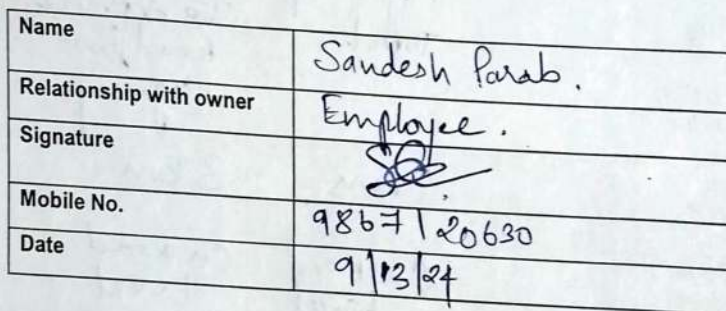 Name Sandesh Parab.
Relationship with owner Employee.
Signature
Mobile No. 9867120630
Date 9/13/24